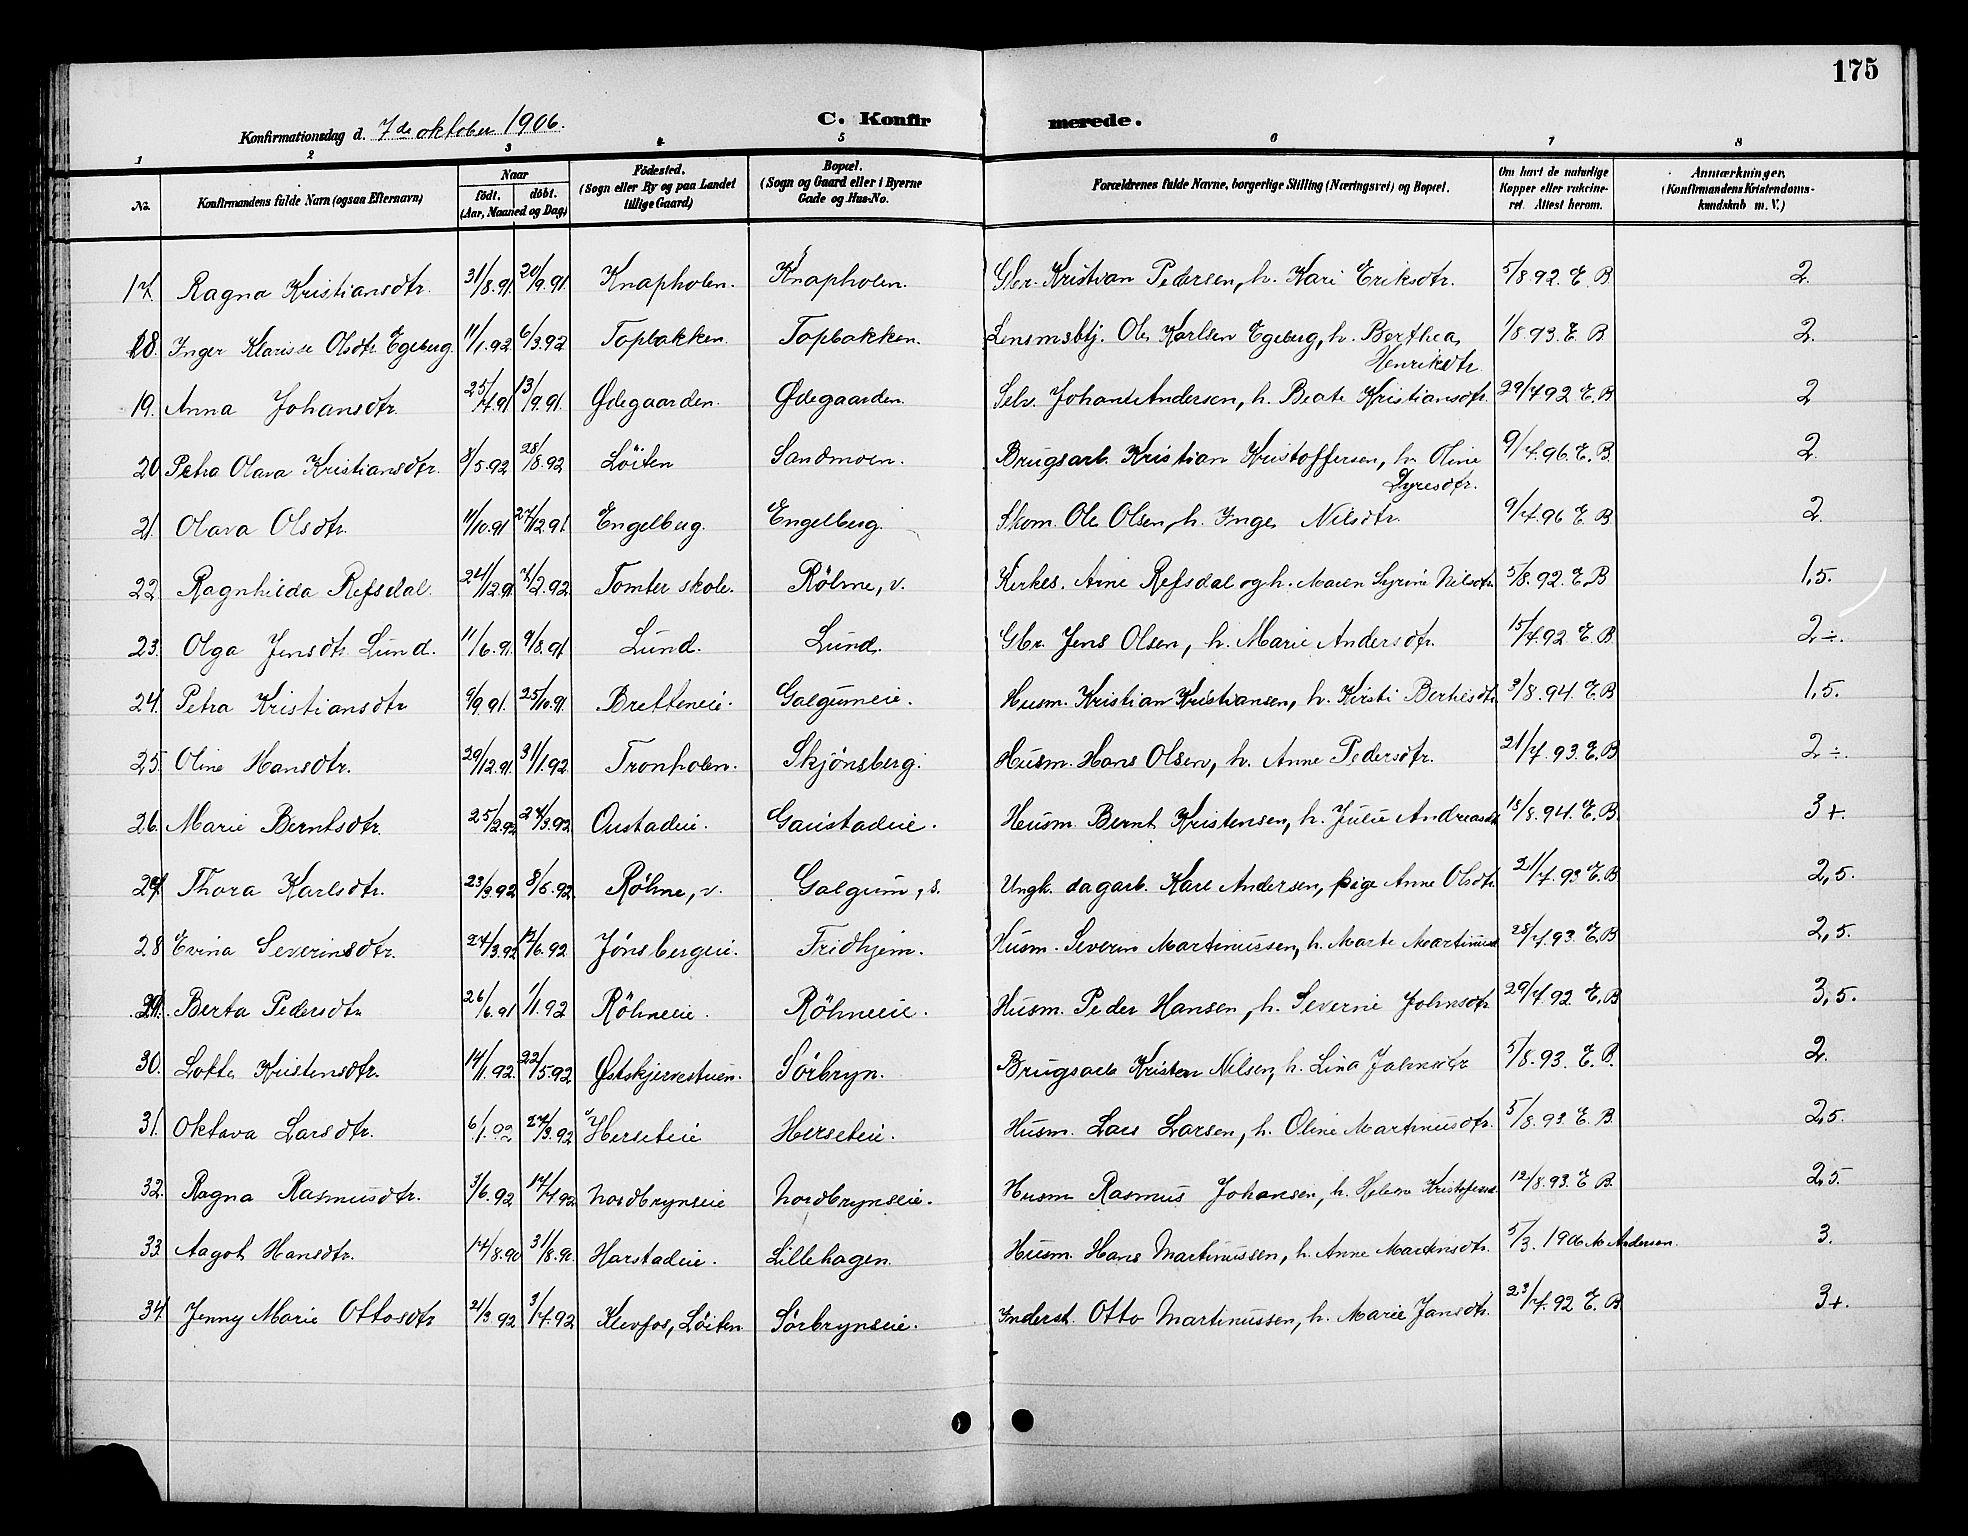 175
Konfirmationsdag d. 7de oktober 1906.
C. Konfirmerede.
1 2 3 4 5 6 7 8
No. Konfirmandens fulde Navn (ogsaa Efternavn) Naar født. døbt. (Aar, Maaned og Dag) Fødested. (Sogn eller By og paa Landet tillige Gaard) Bopæl. (Sogn og Gaard eller i Byerne Gade og Hus-No. Forældrenes fulde Navne, borgerlige Stilling (Næringsvei) og Bopæl. Om havt de naturlige Kopper eller vakcineret. Attest herom. Anmærkninger, (Konfirmandens Kristendomskundskab m. V.)
17. Ragna Kristiansdtr. 31/8.91. 20/9.91. Knapholen. Knapholen. Gbr. Kristian Pedersen, h. Kari Eriksdtr. 5/8.92. E. B. 2.
18. Inger Klarisse Olsdtr Egeberg. 11/1.92. 6/3.92 Topbakken. Topbakken. Lensmsbtj. Ole Karlsen Egeberg, h. Berthea Henriksdtr. 1/8.93. E. B 2.
19. Anna Johansdtr. 25/7.91 13/9.91. Ødegaarden. Ødegaarden. Selv. Johan Andersen, h. Beate Kristiansdtr. 29/7.92 E. B. 2
20. Petra Olava Kristiansdtr. 8/5.92 28/8.92 Löiten Sandmoen. Brugsarb. Kristian Kristoffersen, h. Oline Syresdtr. 9/4.96. E. B. 2.
21. Olava Olsdtr. 11/10.91 27/12.91. Engelberg. Engelberg. Skom. Ole Olsen, h. Inger Nilsdtr. 9/4.96 E. B. 2.
22. Ragnhilda Refsdal. 24/12.91. 7/2.92. Tomter skole. Röhne, v. Kirkes. Arne Refsdal og h. Maren Syrine Nilsdtr. 5/8.92. E. B 1,5.
23. Olga Jensdtr. Lund. 11/6.91. 9/8.91. Lund. Lund. Gbr. Jens Olsen, h. Marie Andersdtr. 15/7.92 E. B. 2÷.
24. Petra Kristiansdtr 9/9.91. 25/10.91. Bretteneie. Galgumeie. Husm. Kristian Kristiansen, h. Kirsti 3/8.94. E. B 1,5.
25. Oline Hansdtr. 29/12.91. 31/1.92. Tronholen. Skjönsberg. Husm. Hans Olsen, h. Anne Pedersdtr. 21/7.93. E. B 2÷.
26. Marie Berntsdtr. 25/2.92 27/3.92 Oustadeie. Gaustadeie. Husm. Bernt Kristensen, h. Julie Andreasdtr. 18/8.94. E. B. 3+.
27. Thora Karlsdtr. 23/3.92 8/5.92. Röhne, v. Galgum, s. Ungk. dagarb. Karl Andersen, pige Anne Olsdtr. 21/7.93 E. B 2,5.
28. Evina Severinsdtr. 24/3.92 12/6.92 Jönsbergeie. Fridhjem. Husm. Severin Martinussen, h. Marte Martinusd 28/7.93. E. B 2,5.
29. Berta Pedersdtr 26/6.91 1/1.92 Röhneeie. Röhneeie. Husm. Peder Hansen, h. Severine Johnsdtr 29/7.92 E. B 3,5.
30. Lotte Kristensdtr. 14/1.92. 22/5.92 Østskjervestuen. Sörbryn. Brugsarb Kristen Nilsen, h. Lina Johnsdtr 5/8.93. E. B. 2.
31. Oktava Larsdtr. 6/1.92 27/3.92 Herseteie Herseteie. Husm. Lars Larsen, h. Oline Martinusdtr. 5/8.93. E. B. 2,5.
32. Ragna Rasmusdtr. 3/6.92 17/7.92. Nordbrynseie Nordbrynseie. Husm Rasmus Johansen, h. Helene 12/8.93. E B. 2,5.
33. Aagot Hansdtr. 17/8.90 31/8.90. Harstadeie. Lillehagen. Husm. Hans Martinussen, h. Anne Martinsdtr. 5/3. 1906 M. Andersen. 3.
34. Jenny Marie Ottosdtr 21/3.92 3/7.92 Klevfos, Löiten Sörbrynseie. Inderst. Otto Martinussen, h. Marie Jansdtr. 23/7.92 E. B 3+.